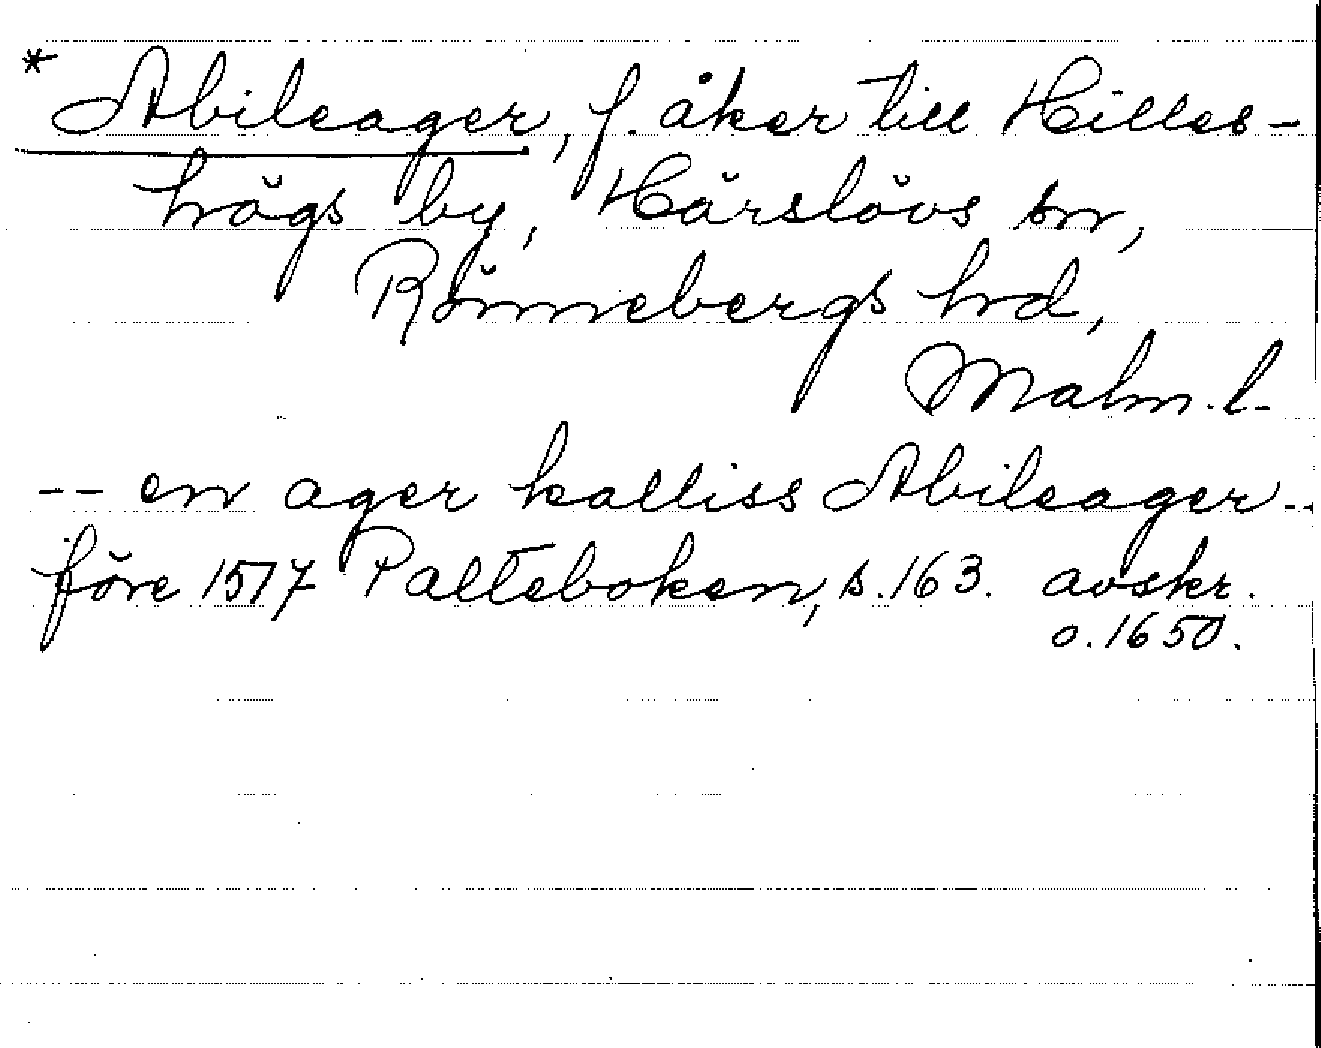 * Abileager, f. åker till Hilles-
högs by, Härslövs sn,
Rönnebergs hd,
Malm. l.
-- en ager kalliss Abileager --
före 1517 Palteboken, s. 163. avskr.
o. 1650.